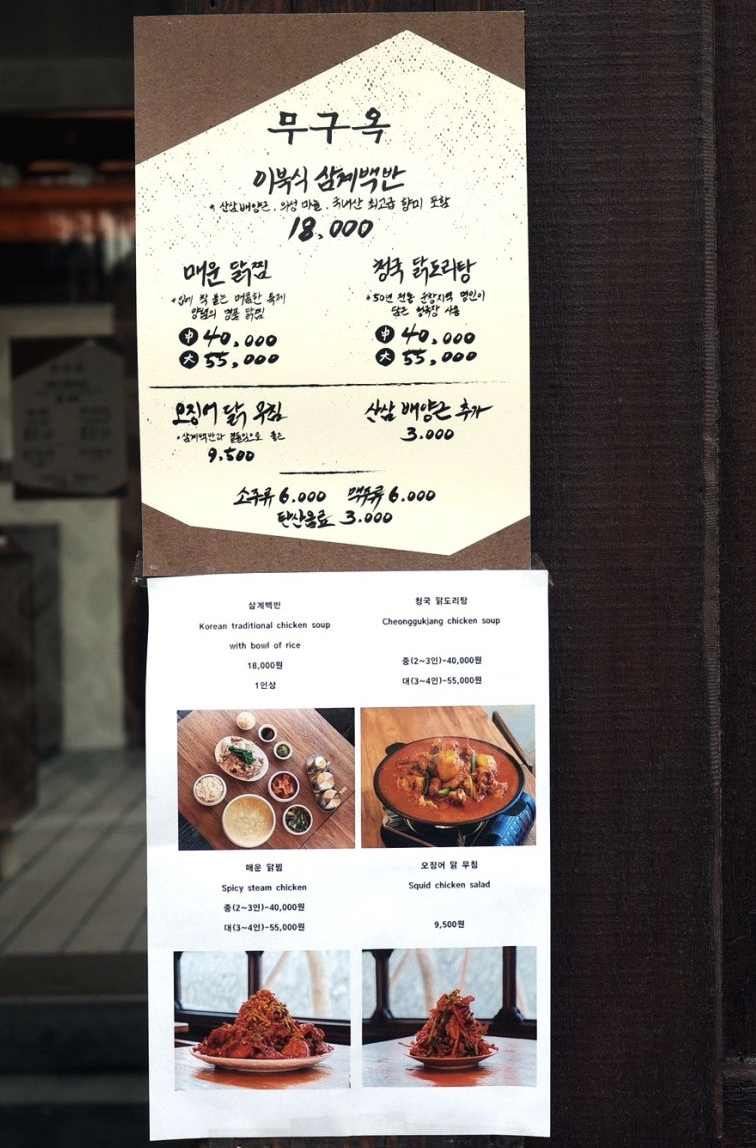 무구옥
이북식 삼계백반
* 산삼배양근. 의성 마늘. 국내산 최고급 향미 포함
18,000
매운 닭찜
* 입에 착 붙는 매콤한 특제
양념의 명품 닭찜
中 40,000
大 55,000
청국 닭도리탕
* 50년 전통 순창지역 명인이
담은 청국장 사용
中 40,000
大 55,000
오징어 닭 무침
* 삼계백반과 곁들임으로 좋은
9,500
산삼 배양근 추가
3,000
소주류 6,000 맥주류 6,000
탄산음료 3,000
삼계백반
Korean traditional chicken soup
with bowl of rice
18,000원
1인상
청국 닭도리탕
Cheonggukjang chicken soup
중(2~3인)-40,000원
대(3~4인)-55,000원
매운 닭찜
Spicy steam chicken
중(2~3인)-40,000원
대(3~4인)-55,000원
오징어 닭 무침
Squid chicken salad
9,500원